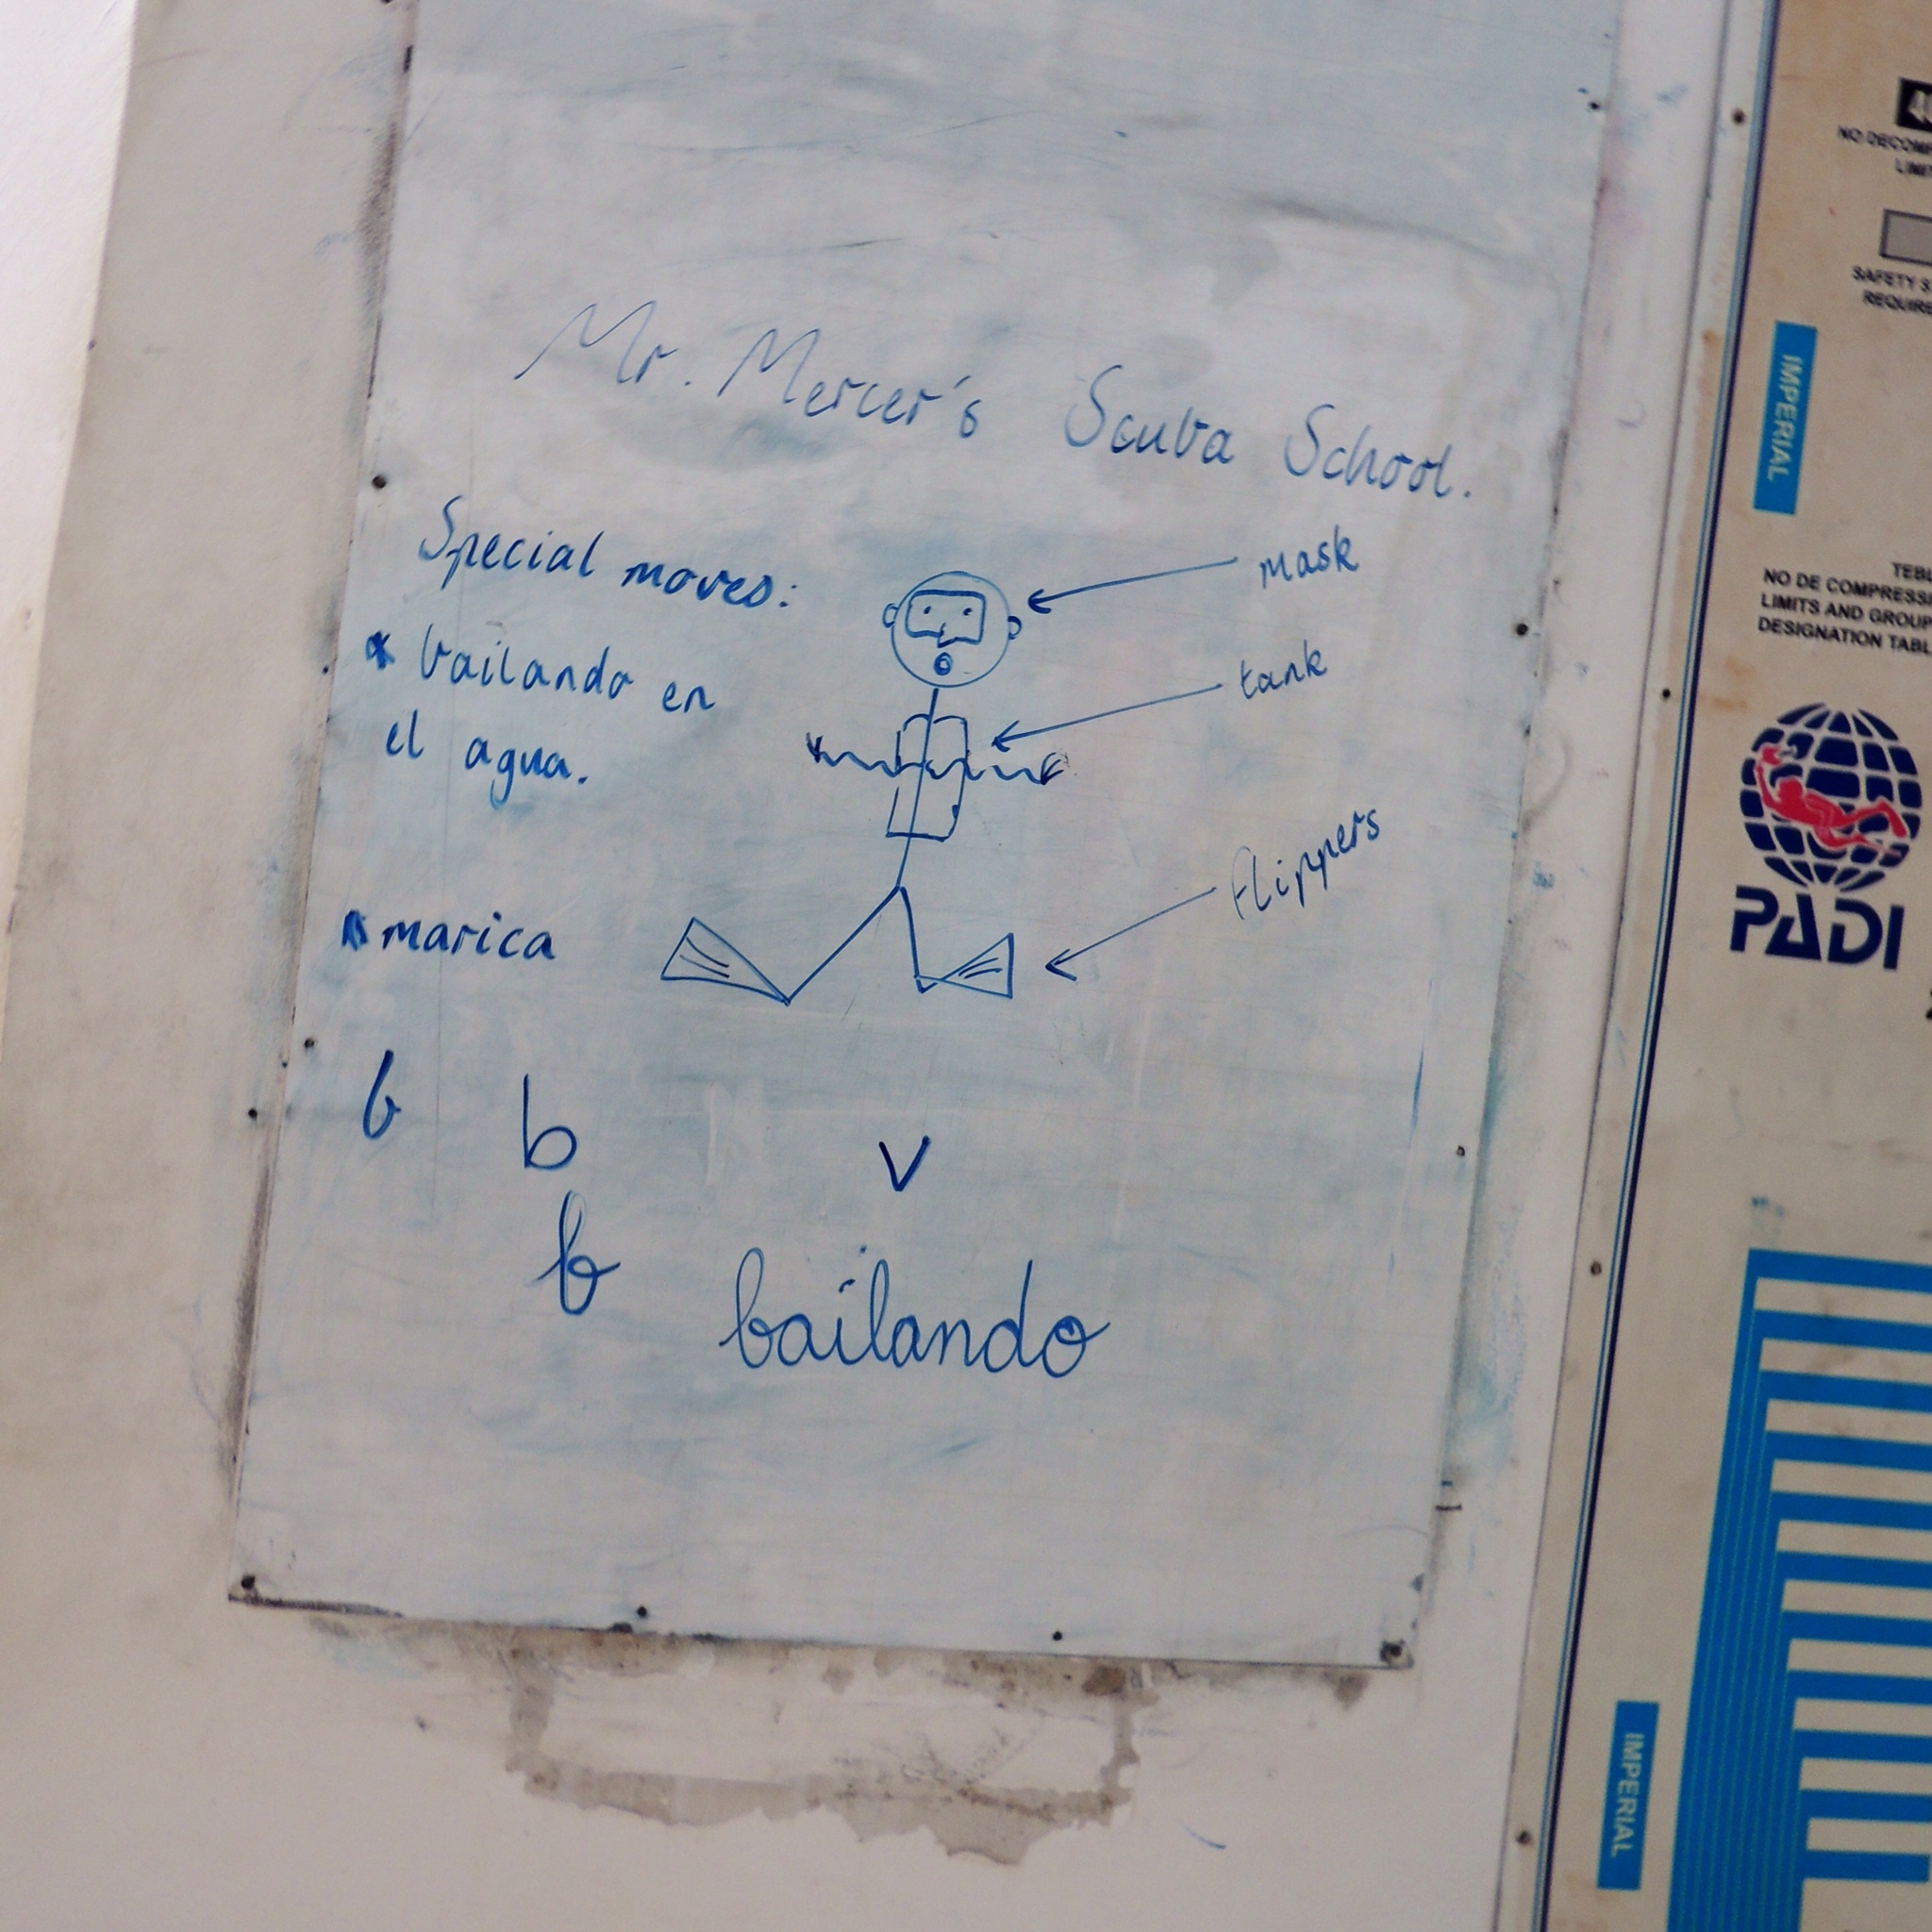 Mr. Mercer's Scuba School.
Special moves:
bailando en
el agua.
marica
mask
tank
flippers
b b v
b
bailando
NO DECOMP
SAFETY S
REQUIRE
IMPERIAL
NO DE COMPRESSI
LIMITS AND GROUP
DESIGNATION TABL
PADI
IMPERIAL